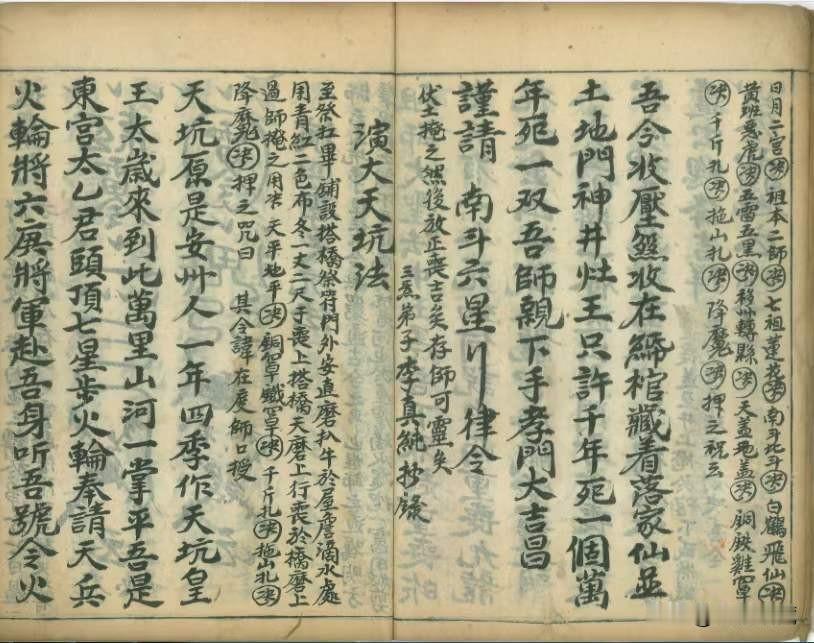 日月二宮㊋祖本二師㊋七祖蓮花㊋南斗北斗㊋白鶴飛仙㊋
黃班惡虎㊋五雷五黑㊋移州轉縣㊋天蓋地蓋㊋銅鉄雞罩
㊋千斤扎㊋拖山扎㊋降魔㊋押之祝云
吾今收壓煞收在棺藏着落家仙並
土地門神井灶王只許千年死一個萬
年死一双吾師親下手孝門大吉昌
謹請南斗六星刂律令
伏土掩之然後放正喪吉矣存師可靈矣
弟子李真純抄錄
演大天坑法
至祭扛畢鋪設搭橋祭符門外安直磨扒牛於屋詹滴水處
用青紅二色布各一丈二尺于喪上搭橋天磨上行喪於橋磨上
過師掩之用字天平地平㊋銅罩鐵罩㊋千斤扎㊋拖山扎㊋
降魔㊋押之咒曰 其令諱在度師口授
天坑原是安州人一年四季作天坑皇
王太歲來到此萬里山河一掌平吾是
東宮太乙君頭頂七星步火輪奉請天兵
火輪將六庚將軍赴吾身听吾號令火